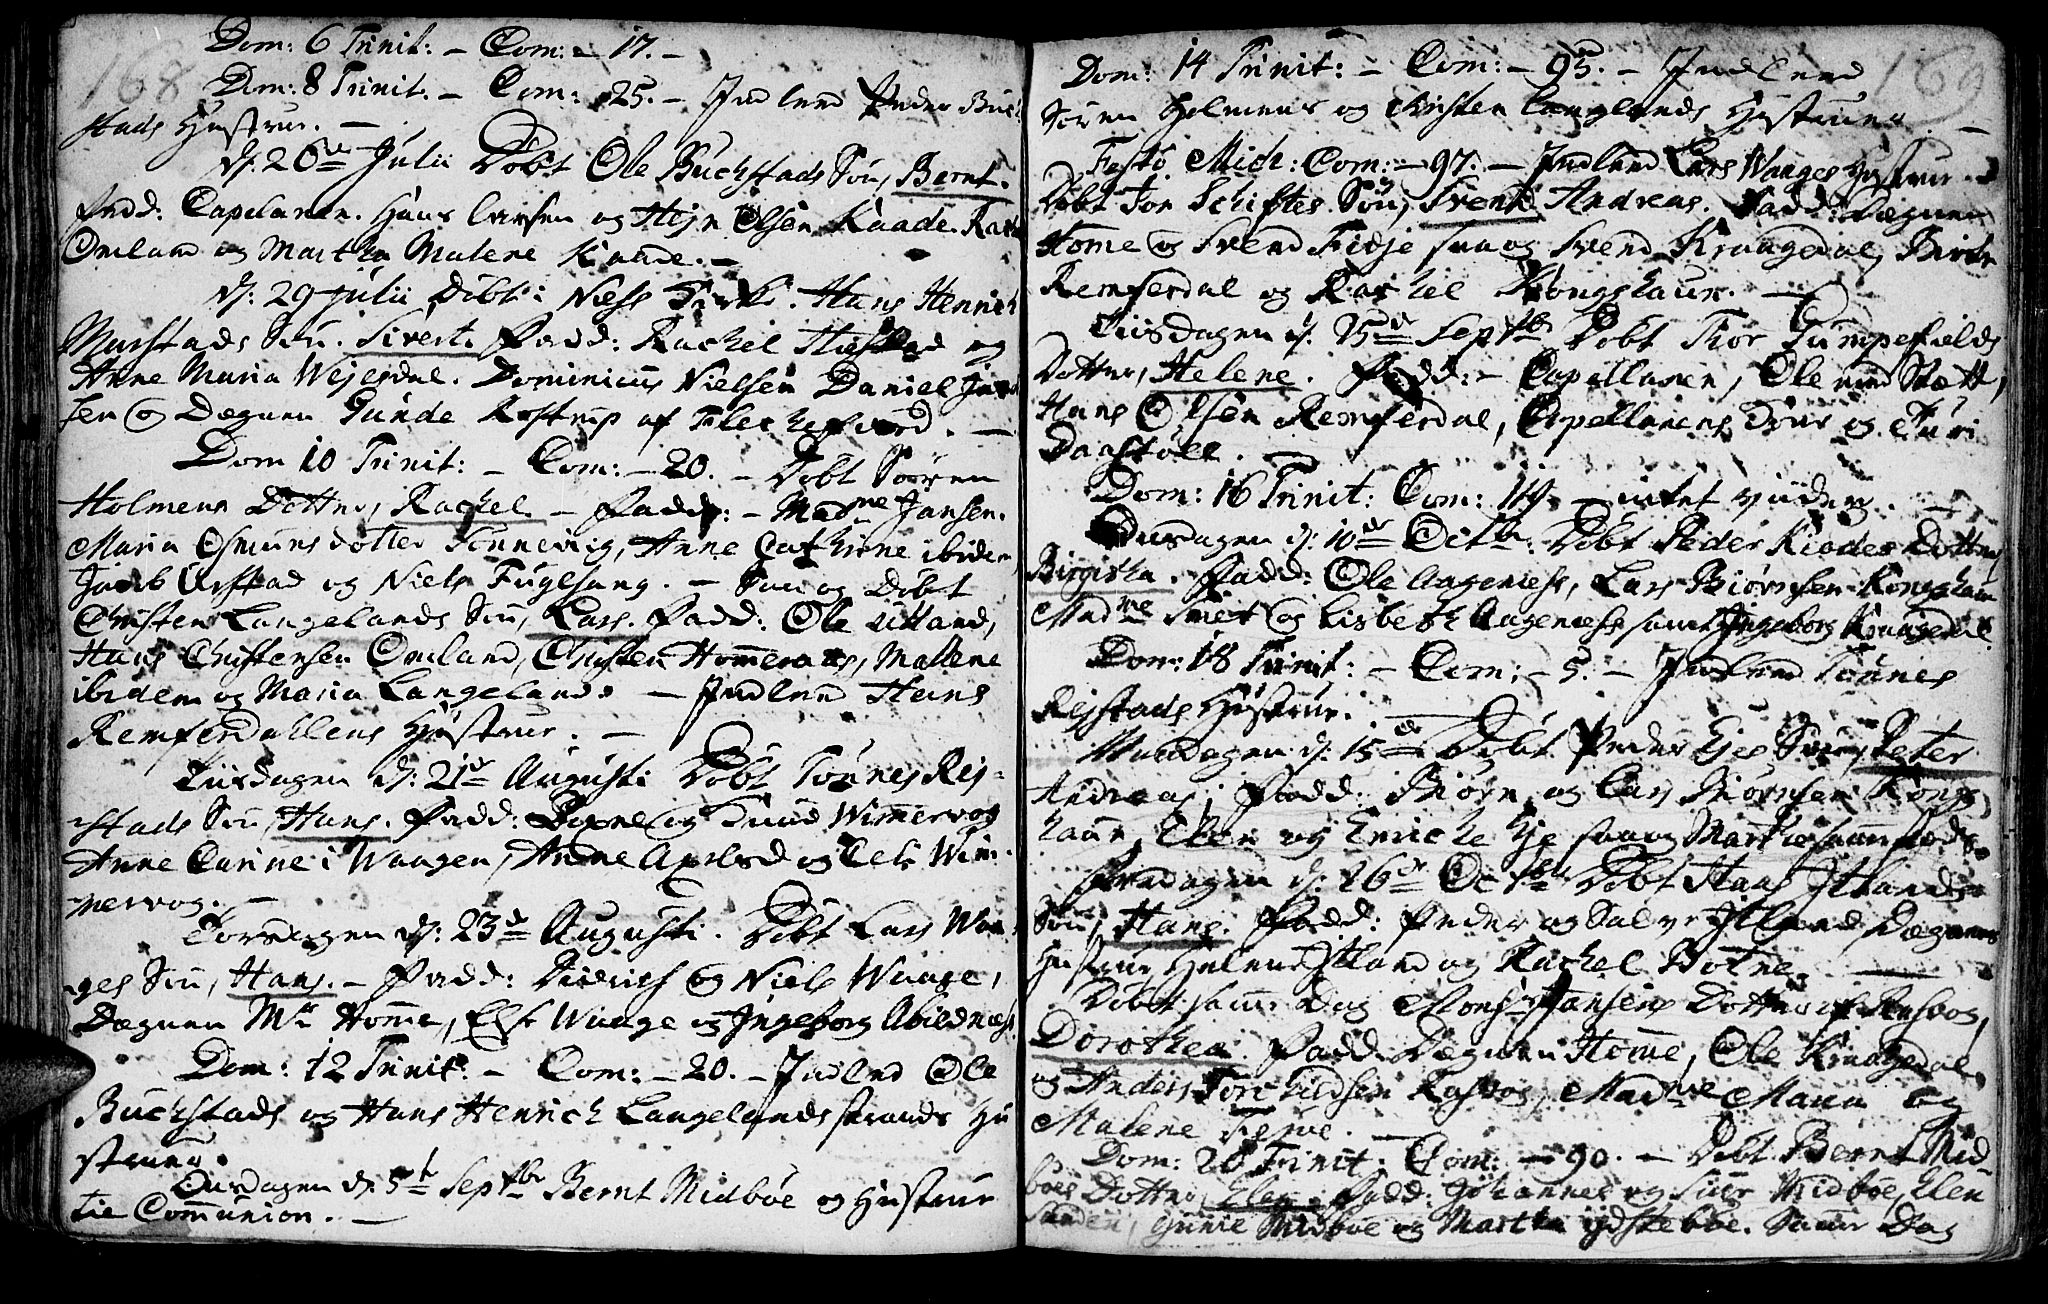 168
Dom: 6 Trinit: - Com: - 17. -
Dom: 8 Trinit. - Com: 25. - Indlend Peder Buch
stads Hustrue. -
d: 20de Julii Døbt Ole Buchstads Søn, Bernt.
Fadd: Capelanen. Hans Larsen og Heyn Olsen Kaade.
Omland og Martha Malene Kaade. -
d: 29 Julii Døbt i Næss Kirke. Hans Henrich
Marstads Søn. Sivert. Fadd: Rachel og
Anne Maria Wejesdal. Dominicus Nielsen Daniel
sen og Degnen Gunde Rostrup af Flechefiord. -
Dom 10 Trinit: - Com: - 20. - Døbt Søren
Holmens Dotter, Rachel. - Fadd: - Madme Jansen.
Maria Osmunsdotter Tonnevig, Anne Cathrine ibidem
Jacob Urstad og Niels Fuglesang. - Saa og Døbt
Christen Langelands Søn, Lars. Fadd: Ole
Hans Christensen Omland, Christen Malene
ibidem og Maria Langeland. - Indlend Hans
Remferdallens Hustrue. -
Tiisdagen d: 21de Augusti Døbt Tønnes Rej-
stads Søn, Hans. Fadd: og Wimmervog
Anne Carine i Waagen, Anne og Wim-
mervog. -
Torsdagen d: 23de Augusti. Døbt Lars Waa-
ges Søn, Hans. - Fadd: Didrich og Niels Waage,
Degnen Mr Homme, Else Waage og Ingeborg Abildnæs
Dom: 12 Trinit. - Com: - 20. - Indlend Ole
Buchstads og Hans Henrich Langelandsstrands Hu
struer.
Onsdagen d: 5te Septbr Bernt Midbøe og Hustrue
til Communion. -
169
Dom: 14 Trinit: - Com: - 95. - Indlend
Søren Holmens og Christen Langelands Hustruer. -
Festo Mich: Com: - 97. - Indlend Lars Waages Hustrue.
Døbt Tor Schiftes Søn, Svend Andreas. Fadd: Degnen
Home og Svend Fidje saa og Svend Kraagedal,
Remferdal og Rachel Kongshaun. -
Tiisdagen d: 25de Septbr Døbt Thor Gumpefields
Dotter, Helene. Fadd: - Capellanen, Ole
Hans Olsen Remferdal, Capellanens og Guri
Daastøll. -
Dom: 16 Trinit: Com: 119. - intet viider. -
Onsdagen d: 10de Octbr: Døbt Peder Kiødes Dotter
Birgitha. Fadd: Ole Aagenæss, Lars Biørnsen Kongshaun
Madme og Lisbeth Aagenæss samt Ingeborg Kraagedal.
Dom: 18 Trinit: - Com: - 5. - Indlend Tønnes
Rejstads Hustrue. -
Mandagen d: 15de Døbt Peder Eies Søn, Peter
Andreas; Fadd: Biørn og Lars Biørnsen Kongs
haun, Elen og Enicke Eje saa og Marthe
Fredagen d: 26de Octbr Døbt Hans Itlands
Søn, Hans. Fadd: Peder og Salve Itland, Degnens
Hustrue, Helene Itland og Rachel Botne. -
Døbt samme Dag Monsr Jansens Dotter af Rasvog,
Dorothea. Fadd: Degnen Homme, Ole Kraagedal
og Anders Torkildsen Rasvog, Madme Maria og
Malene -
Dom: 20 Trinit. Com: - 90. - Døbt Bernt Mid
bøes Dotter, Elen. Fadd: Johannes og Siur Midbøe, Elen
Sanden, Gunild Midbøe og Martha Ydstebøe. Samme Dag